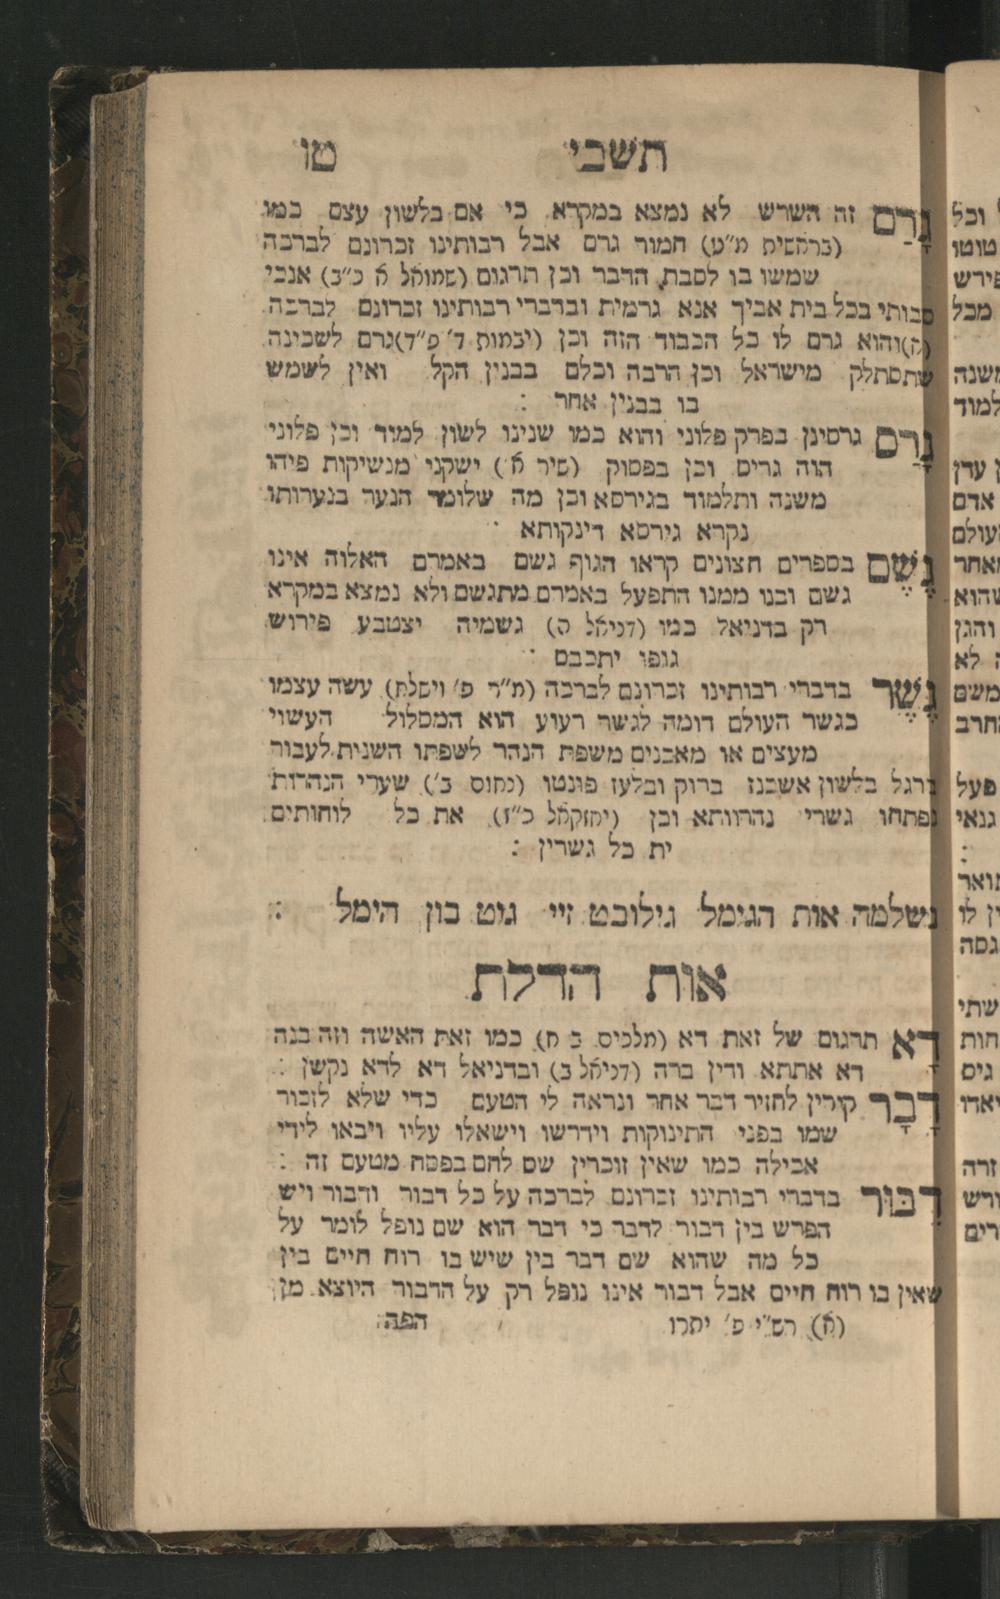 תשבי טו
גָרַם זה השרש לא נמצא במקרא כי אם בלשון עצם כמו
(בראשית מ״ט) חמור גרם אבל רבותינו זכרונם לברכה
שמשו בו לסבת הדבר וכן תרגום (שמואל א כ״ב) אנכי
סבותי בכל בית אביך אנא גרמית ובדברי רבותינו זכרונם לברכה
והוא גרם לו כל הכבוד הזה וכן (יבמות ד׳ פ״ד) גרם לשכינה
שתסתלק מישראל וכן הרבה וכלם בבנין הקל ואין לשמש
בו בבנין אחר :
גָרַם גרסינן בפרק פלוני והוא כמו שנינו לשון למוד וכן פלוני
הוה גריס וכן בפסוק (שיר א׳) ישקני מנשיקות פיהו
משנה ותלמוד בגירסא וכן מה שלומד הנער בנערותו
נקרא גירסא דינקותא
גֶשֶׁם בספרים חצונים קראו הגוף גשם באמרם האלוה אינו
גשם ובנו ממנו התפעל באמרם מתגשם ולא נמצא במקרא
רק בדניאל כמו (דניאל ה) גשמיה יצטבע פירוש
גופו יתכבס :
גֶשֶׁר בדברי רבותינו זכרונם לברכה (מ״ר פ׳ וישלח) עשה עצמו
כגשר העולם דומה לגשר רעוע הוא המסלול העשוי
מעצים או מאבנים משפת הנהר לשפתו השנית לעבור
ברגל בלשון אשכנז ברוק ובלעז פונטו (נחום ב׳) שערי הנהרות
נפתחו גשרי נהרוותא וכן (יחזקאל כ״ז) את כל לוחותים
ית כל גשרין :
נשלמה אות הגימל גילובט זיי גוט בון הימל :
אות הדלת
דָא תרגום של זאת דא (מלכים ב ח) כמו זאת האשה וזה בנה
דא אתתא ודין ברה (דניאל ב) ובדניאל דא לדא נקשן :
דָבָר קורין לחזיר דבר אחר ונראה לי הטעם כדי שלא לזכור
שמו בפני התינוקות וידרשו וישאלו עליו ויבאו לידי
אכילה כמו שאין זוכרין שם לחם בפסח מטעם זה :
דִבּוּר בדברי רבותינו זכרונם לברכה על כל דבור ודבור ויש
הפרש בין דבור לדבר כי דבר הוא שם נופל לומר על
כל מה שהוא שם דבר בין שיש בו רוח חיים בין
שאין בו רוח חיים אבל דבור אינו נופל רק על הדבור היוצא מן
(א) רש״י פ׳ יתרו הפה